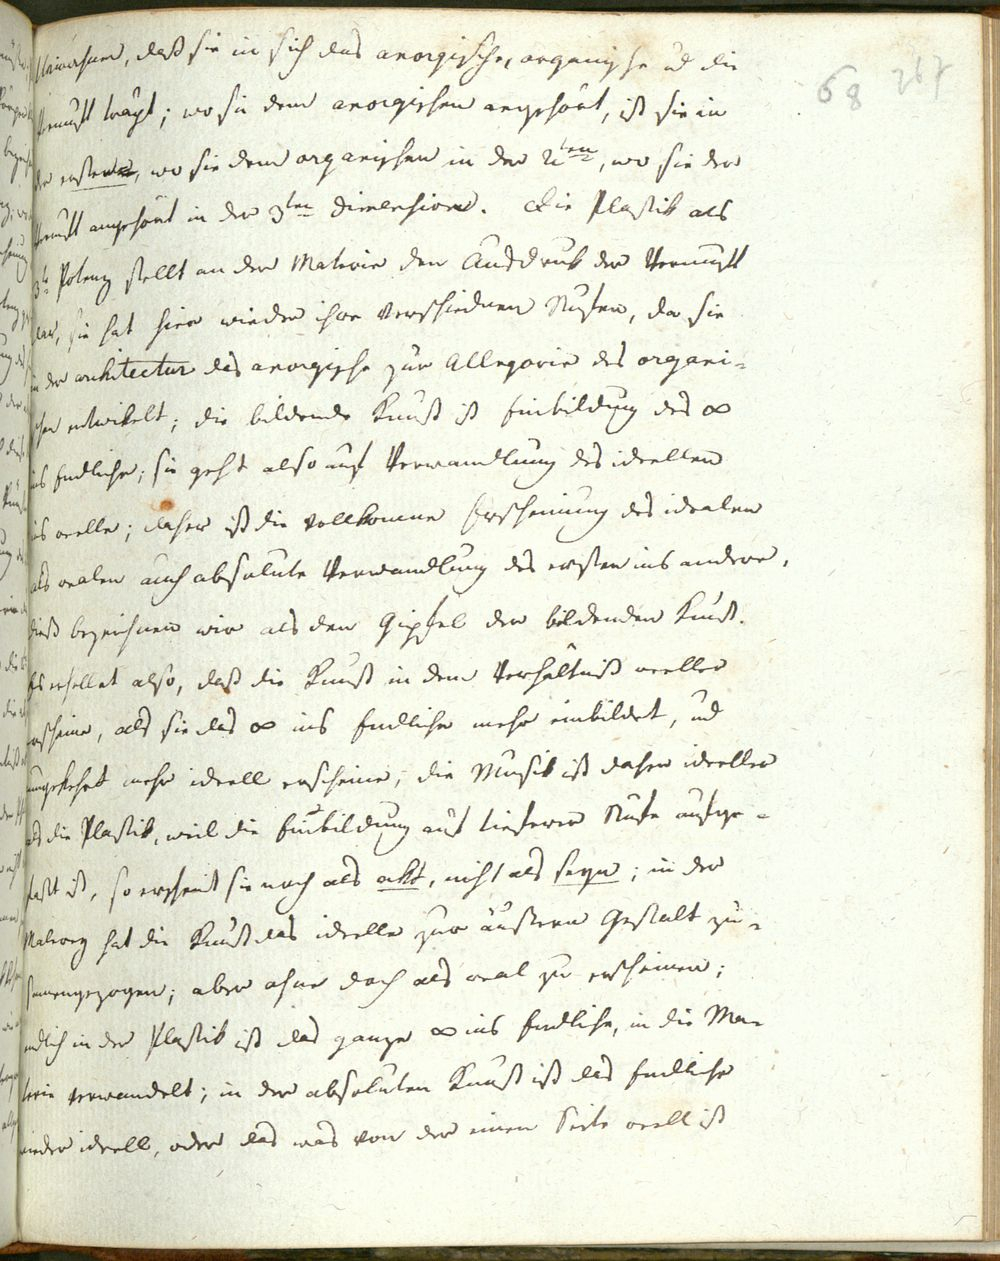 68 267
Universum, daß sie in sich das anorgische, organische ud die
Vernunft trägt; wo sie dem anorgischen angehört, ist sie in
der ersten, wo sie dem organischen in der 2ten, wo sie der
Vernunft angehört in der 3ten Dimension. Die Plastik als
3te Potenz stellt an der Materie den Ausdruk der Vernunft
dar, sie hat hier wieder ihre verschiednen Stufen, da sie
in der architectur das anorgische zur Allegorie des organi-
schen entwikelt; die bildende Kunst ist Einbildung des ∞
ins Endliche; sie geht also auf Verwandlung des ideellen
ins reelle; daher ist die vollkomne Erscheinung des idealen
als realen auch absolute Verwandlung des ersten ins andere,
dieß bezeichnen wir als den Gipfel der bildenden Kunst.
Es erhellet also, daß die Kunst in dem Verhältniß reeller
erscheine, als sie das ∞ ins Endliche mehr einbildet, ud
umgekehrt mehr ideell erscheine; die Musik ist daher ideeller
als die Plastik, weil die Einbildung auf tieferer Stufe aufge-
faßt ist, so erscheint sie noch als akt, nicht als seyn; in der
Malerey hat die Kunst das ideelle zur äussern Gestalt zu-
samengezogen; aber ohne doch als real zu erscheinen;
endlich in der Plastik ist das ganze ∞ ins Endliche, in die Ma-
terie verwandelt; in der absoluten Kunst ist das Endliche
wieder ideell, oder das was von der einen Seite reell ist